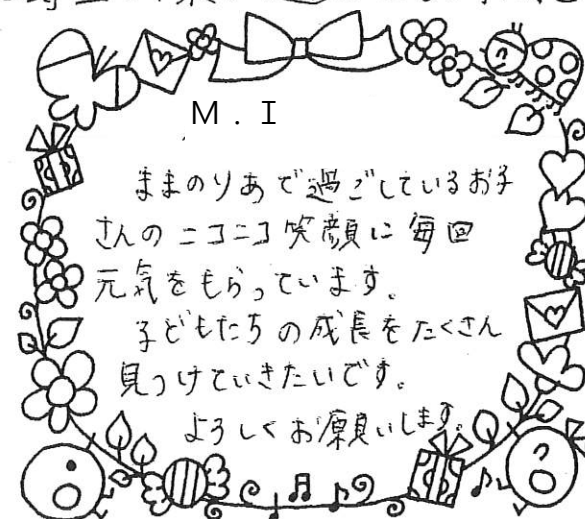 M．I
ままのりあで過ごしているお子
さんのニコニコ笑顔に毎回
元気をもらっています。
子どもたちの成長をたくさん
見つけていきたいです。
よろしくお願いします。